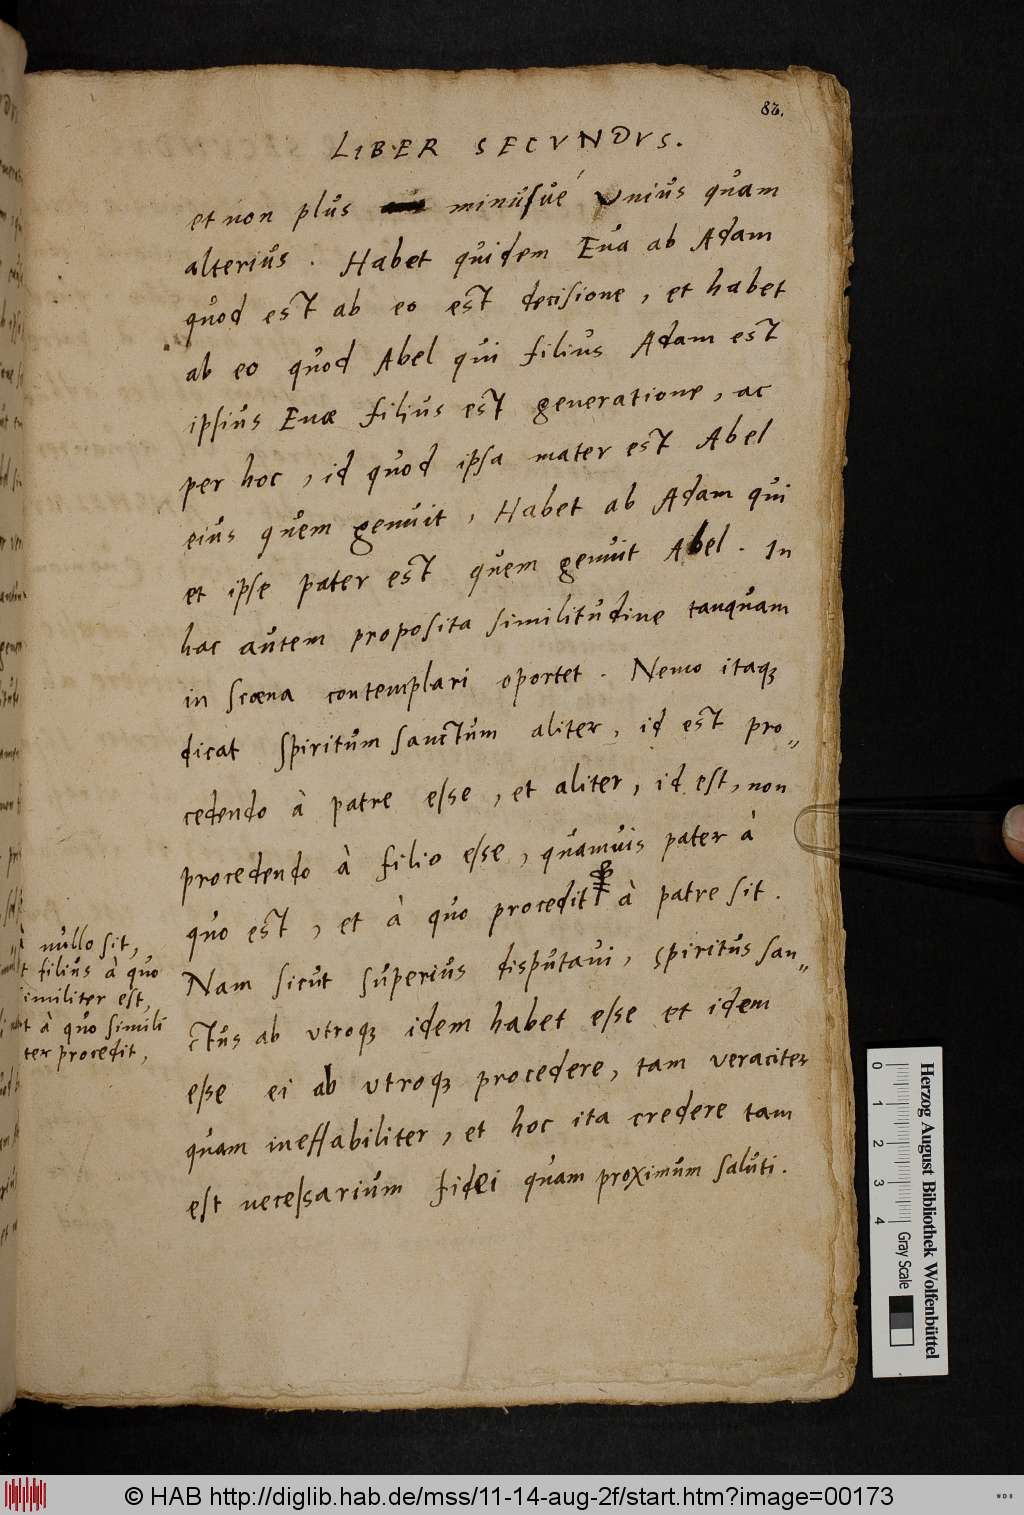 83.
LIBER SECVNDVS.
et non plus minusue vnius quam
alterius. Habet quidem Eua ab Adam
quod est ab eo est decisione, et habet
ab eo quod Abel qui filius Adam est
ipsius Euæ filius est generatione, ac
per hoc, id quod ipsa mater est Abel
eius quem genuit, Habet ab Adam qui
et ipse pater est quem genuit Abel. In
hac autem proposita similitudine tanquam
in scœna contemplari oportet. Nemo itaqꝫ
dicat spiritum sanctum aliter, id est pro„
cedendo à patre esse, et aliter, id est, non
procedendo à filio esse, quamuis pater à
quo est, et à quo procedit à patre sit.
nullo sit,
t filius à quo
imiliter est,
t à quo simili
ter procedit,
Nam sicut superius disputaui, spiritus san„
ctus ab vtroqꝫ idem habet esse et idem
esse ei ab vtroqꝫ procedere, tam veraciter
quam ineffabiliter, et hoc ita credere tam
est necessarium fidei quam proximum saluti.
0 1 2 3 4
Herzog August Bibliothek Wolfenbüttel
Gray Scale
© HAB http://diglib.hab.de/mss/11-14-aug-2f/start.htm?image=00173